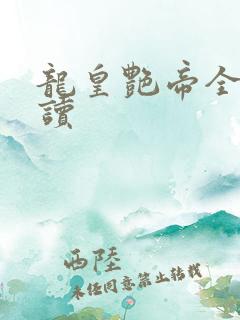 龍皇艷帝全
讀
西陸
未经同意禁止转载